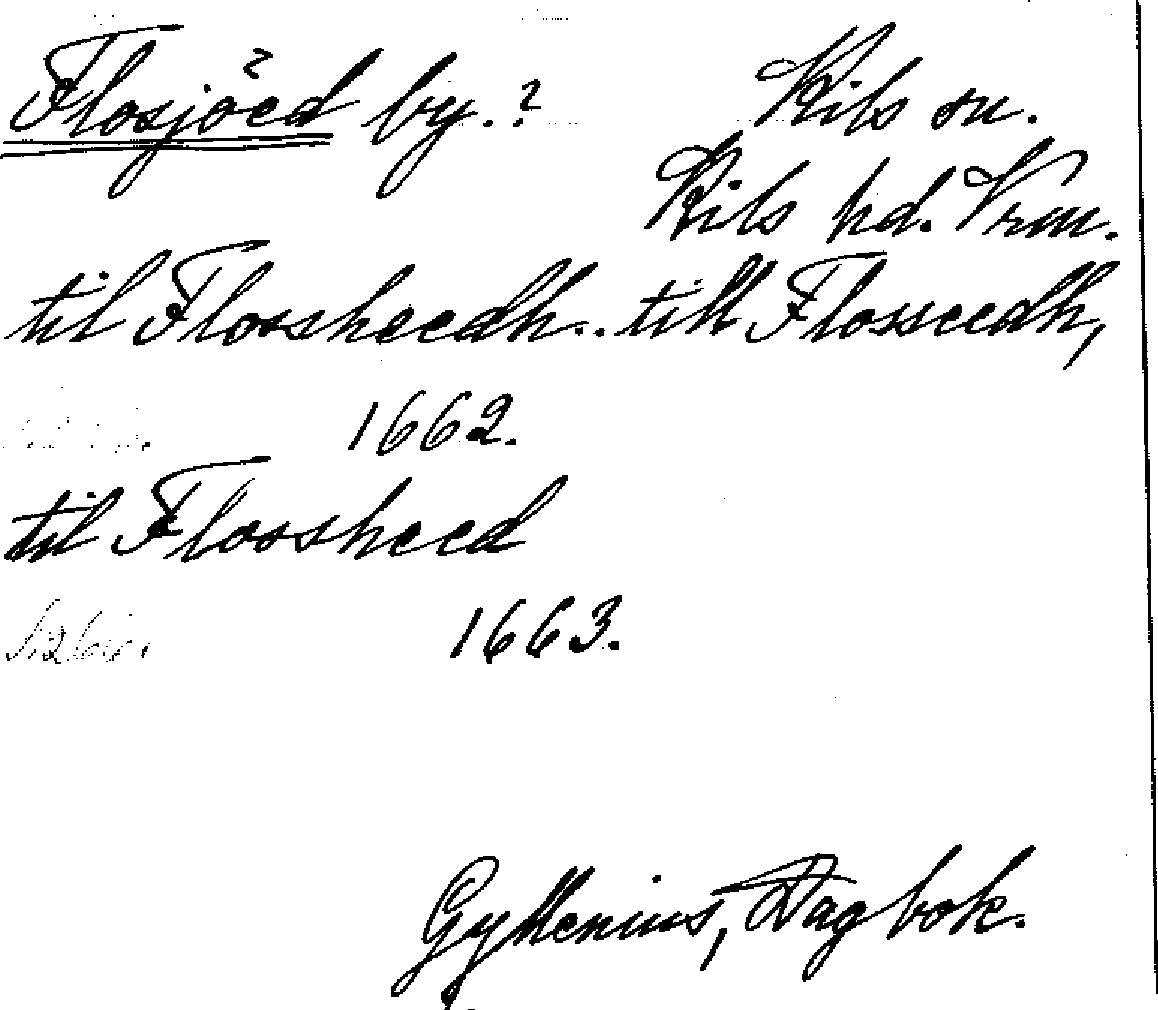 Flosjöed by.? Kils sn.
Kils hd. Vrm.
til Flossheedh.. till Flosseedh,
1662.
til Flossheed
1663.
Gyllenius, Dagbok.